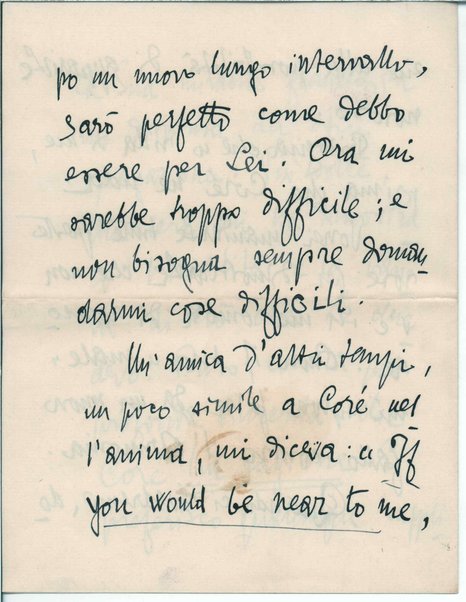 po un nuovo lungo intervallo,
sarò perfetto come debbo
essere per Lei. Ora mi
sarebbe troppo difficile; e
non bisogna sempre doman-
darmi cose difficili.
Un'amica d'altri tempi,
un poco simile a Coré nel
l'anima, mi diceva: « If
you would be near to me,